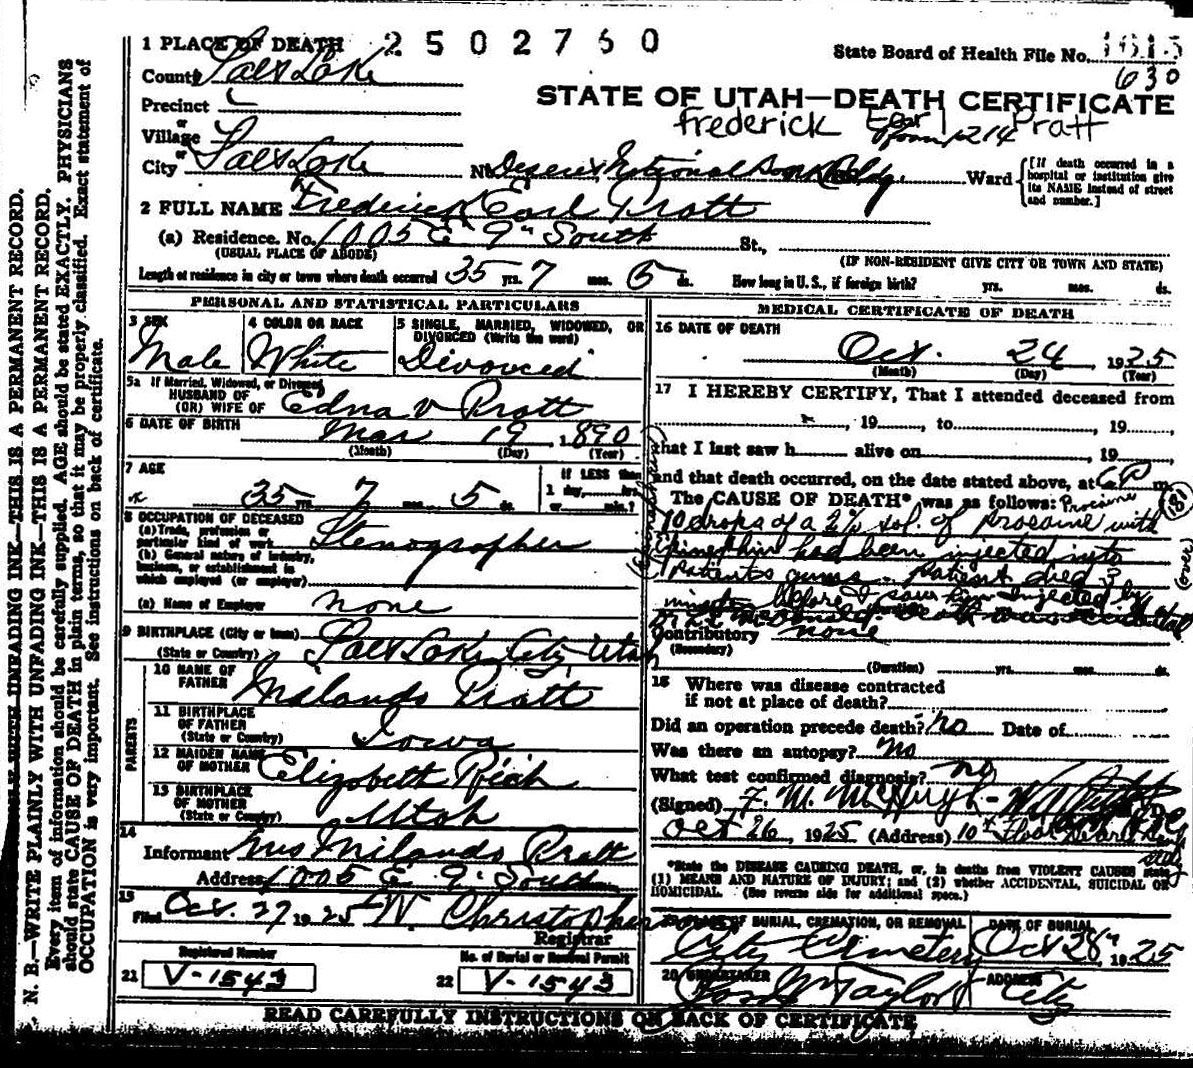 1 PLACE OF DEATH 2502760
State Board of Health File No. 1615
630
County Salt Lake
STATE OF UTAH—DEATH CERTIFICATE
Precinct
frederick Earl Pratt
or
Village
Room 1214
or
City Salt Lake No. Deseret National Bank Bldg. Ward
[If death occurred in a hospital or institution give its NAME instead of street and number.]
2 FULL NAME Frederick Earl Pratt
(a) Residence. No. 1005 E 9" South St.,
(USUAL PLACE OF ABODE) (IF NON-RESIDENT GIVE CITY OR TOWN AND STATE)
Length of residence in city or town where death occurred 35 yrs. 7 mos. 5 ds. How long in U. S., if foreign birth? yrs. mos. ds.
PERSONAL AND STATISTICAL PARTICULARS
3 SEX
Male
4 COLOR OR RACE
White
5 SINGLE, MARRIED, WIDOWED, OR
DIVORCED (Write the word)
Divorced
5a If Married, Widowed, or Divorced
HUSBAND OF
(OR) WIFE OF Edna V Pratt
6 DATE OF BIRTH Mar 19, 1890
(Month) (Day) (Year)
7 AGE
35 yrs. 7 mos. 5 ds.
If LESS than
1 day, hrs.
or min.?
8 OCCUPATION OF DECEASED
(a) Trade, profession or
particular kind of work Stenographer
(b) General nature of industry,
business, or establishment in
which employed (or employer)
(a) Name of Employer none
9 BIRTHPLACE (City or town)
(State or Country) Salt Lake City, Utah
PARENTS
10 NAME OF
FATHER Milando Pratt
11 BIRTHPLACE
OF FATHER
(State or Country) Iowa
12 MAIDEN NAME
OF MOTHER Elizabeth Rich
13 BIRTHPLACE
OF MOTHER
(State or Country) Utah
14
Informant Mrs Milando Pratt
Address 1005 E 9" South
15
Filed Oct. 27 1925 W Christopherson
Registrar
Registered Number No. of Burial or Removal Permit
21 V-1543 22 V-1543
MEDICAL CERTIFICATE OF DEATH
16 DATE OF DEATH
Oct. 24 1925
(Month) (Day) (Year)
17 I HEREBY CERTIFY, That I attended deceased from
, 19 , to , 19 ,
that I last saw h alive on , 19
and that death occurred, on the date stated above, at 6 P m
The CAUSE OF DEATH* was as follows: Procaine
10 drops of a 2% sol. of procaine with
epinephrin had been injected into
patients gums. Patient died 3
minutes before I saw him Injected by
Dr. McDonald. Death was accidental
(over)
181
Contributory none
(Secondary)
(Duration) yrs. mos. ds.
18 Where was disease contracted
if not at place of death?
Did an operation precede death? No Date of
Was there an autopsy? No
What test confirmed diagnosis? no
(Signed) F. M. McHugh
Oct 26, 1925 (Address) 10th Floor
*State the DISEASE CAUSING DEATH, or, in deaths from VIOLENT CAUSES state
(1) MEANS AND NATURE OF INJURY; and (2) whether ACCIDENTAL, SUICIDAL OR
HOMICIDAL. (See reverse side for additional space.)
19 PLACE OF BURIAL, CREMATION, OR REMOVAL DATE OF BURIAL
City Cemetery Oct 28", 1925
20 UNDERTAKER ADDRESS
Jos. Wm Taylor City
READ CAREFULLY INSTRUCTIONS ON BACK OF CERTIFICATE
N. B.—WRITE PLAINLY WITH UNFADING INK—THIS IS A PERMANENT RECORD.
Every item of information should be carefully supplied. AGE should be stated EXACTLY. PHYSICIANS
should state CAUSE OF DEATH in plain terms, so that it may be properly classified. Exact statement of
OCCUPATION is very important. See instructions on back of certificate.